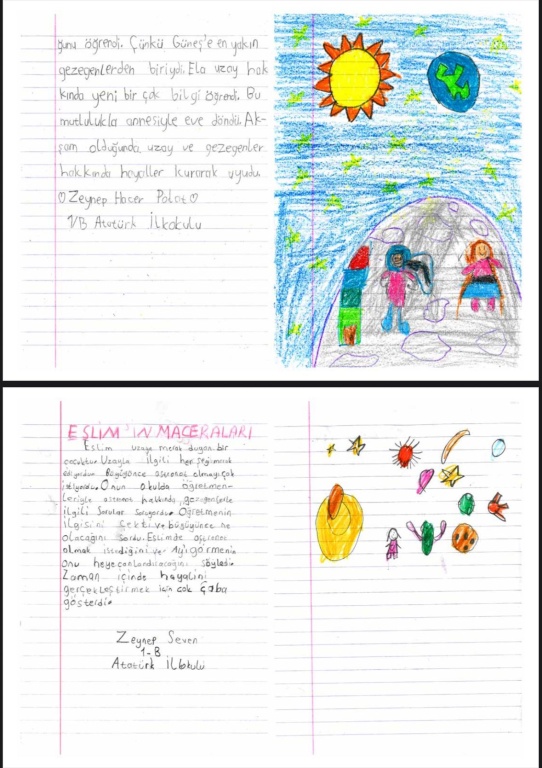 ğunu öğrendi. Çünkü Güneş'e en yakın
gezegenlerden biriydi. Ela uzay hak
kında yeni bir çok bilgi öğrendi. Bu
mutlulukla annesiyle eve döndü. Ak-
şam olduğunda uzay ve gezegenler
hakkında hayaller kurarak uyudu.
♡Zeynep Hacer Polat♡
1/B Atatürk İlkokulu
ESLİM'İN MACERALARI
Eslim uzaya merak duyan bir
çocuktu. Uzayla ilgili her şeyi merak
ediyordu. Büyüyünce astronot olmayı çok
istiyordu. Onun okulda öğretmen-
leriyle astronot hakkında, gezegenlerle
ilgili sorular soruyordu. Öğretmenin
ilgisini çekti ve büyüyünce ne
olacağını sordu. Eslimde astronot
olmak istediğini ve Ay'ı görmenin
onu heyecanlandıracağını söyledi.
Zaman içinde hayalini
gerçekleştirmek için çok çaba
gösterdi.
Zeynep Seven
1-B
Atatürk İlkokulu